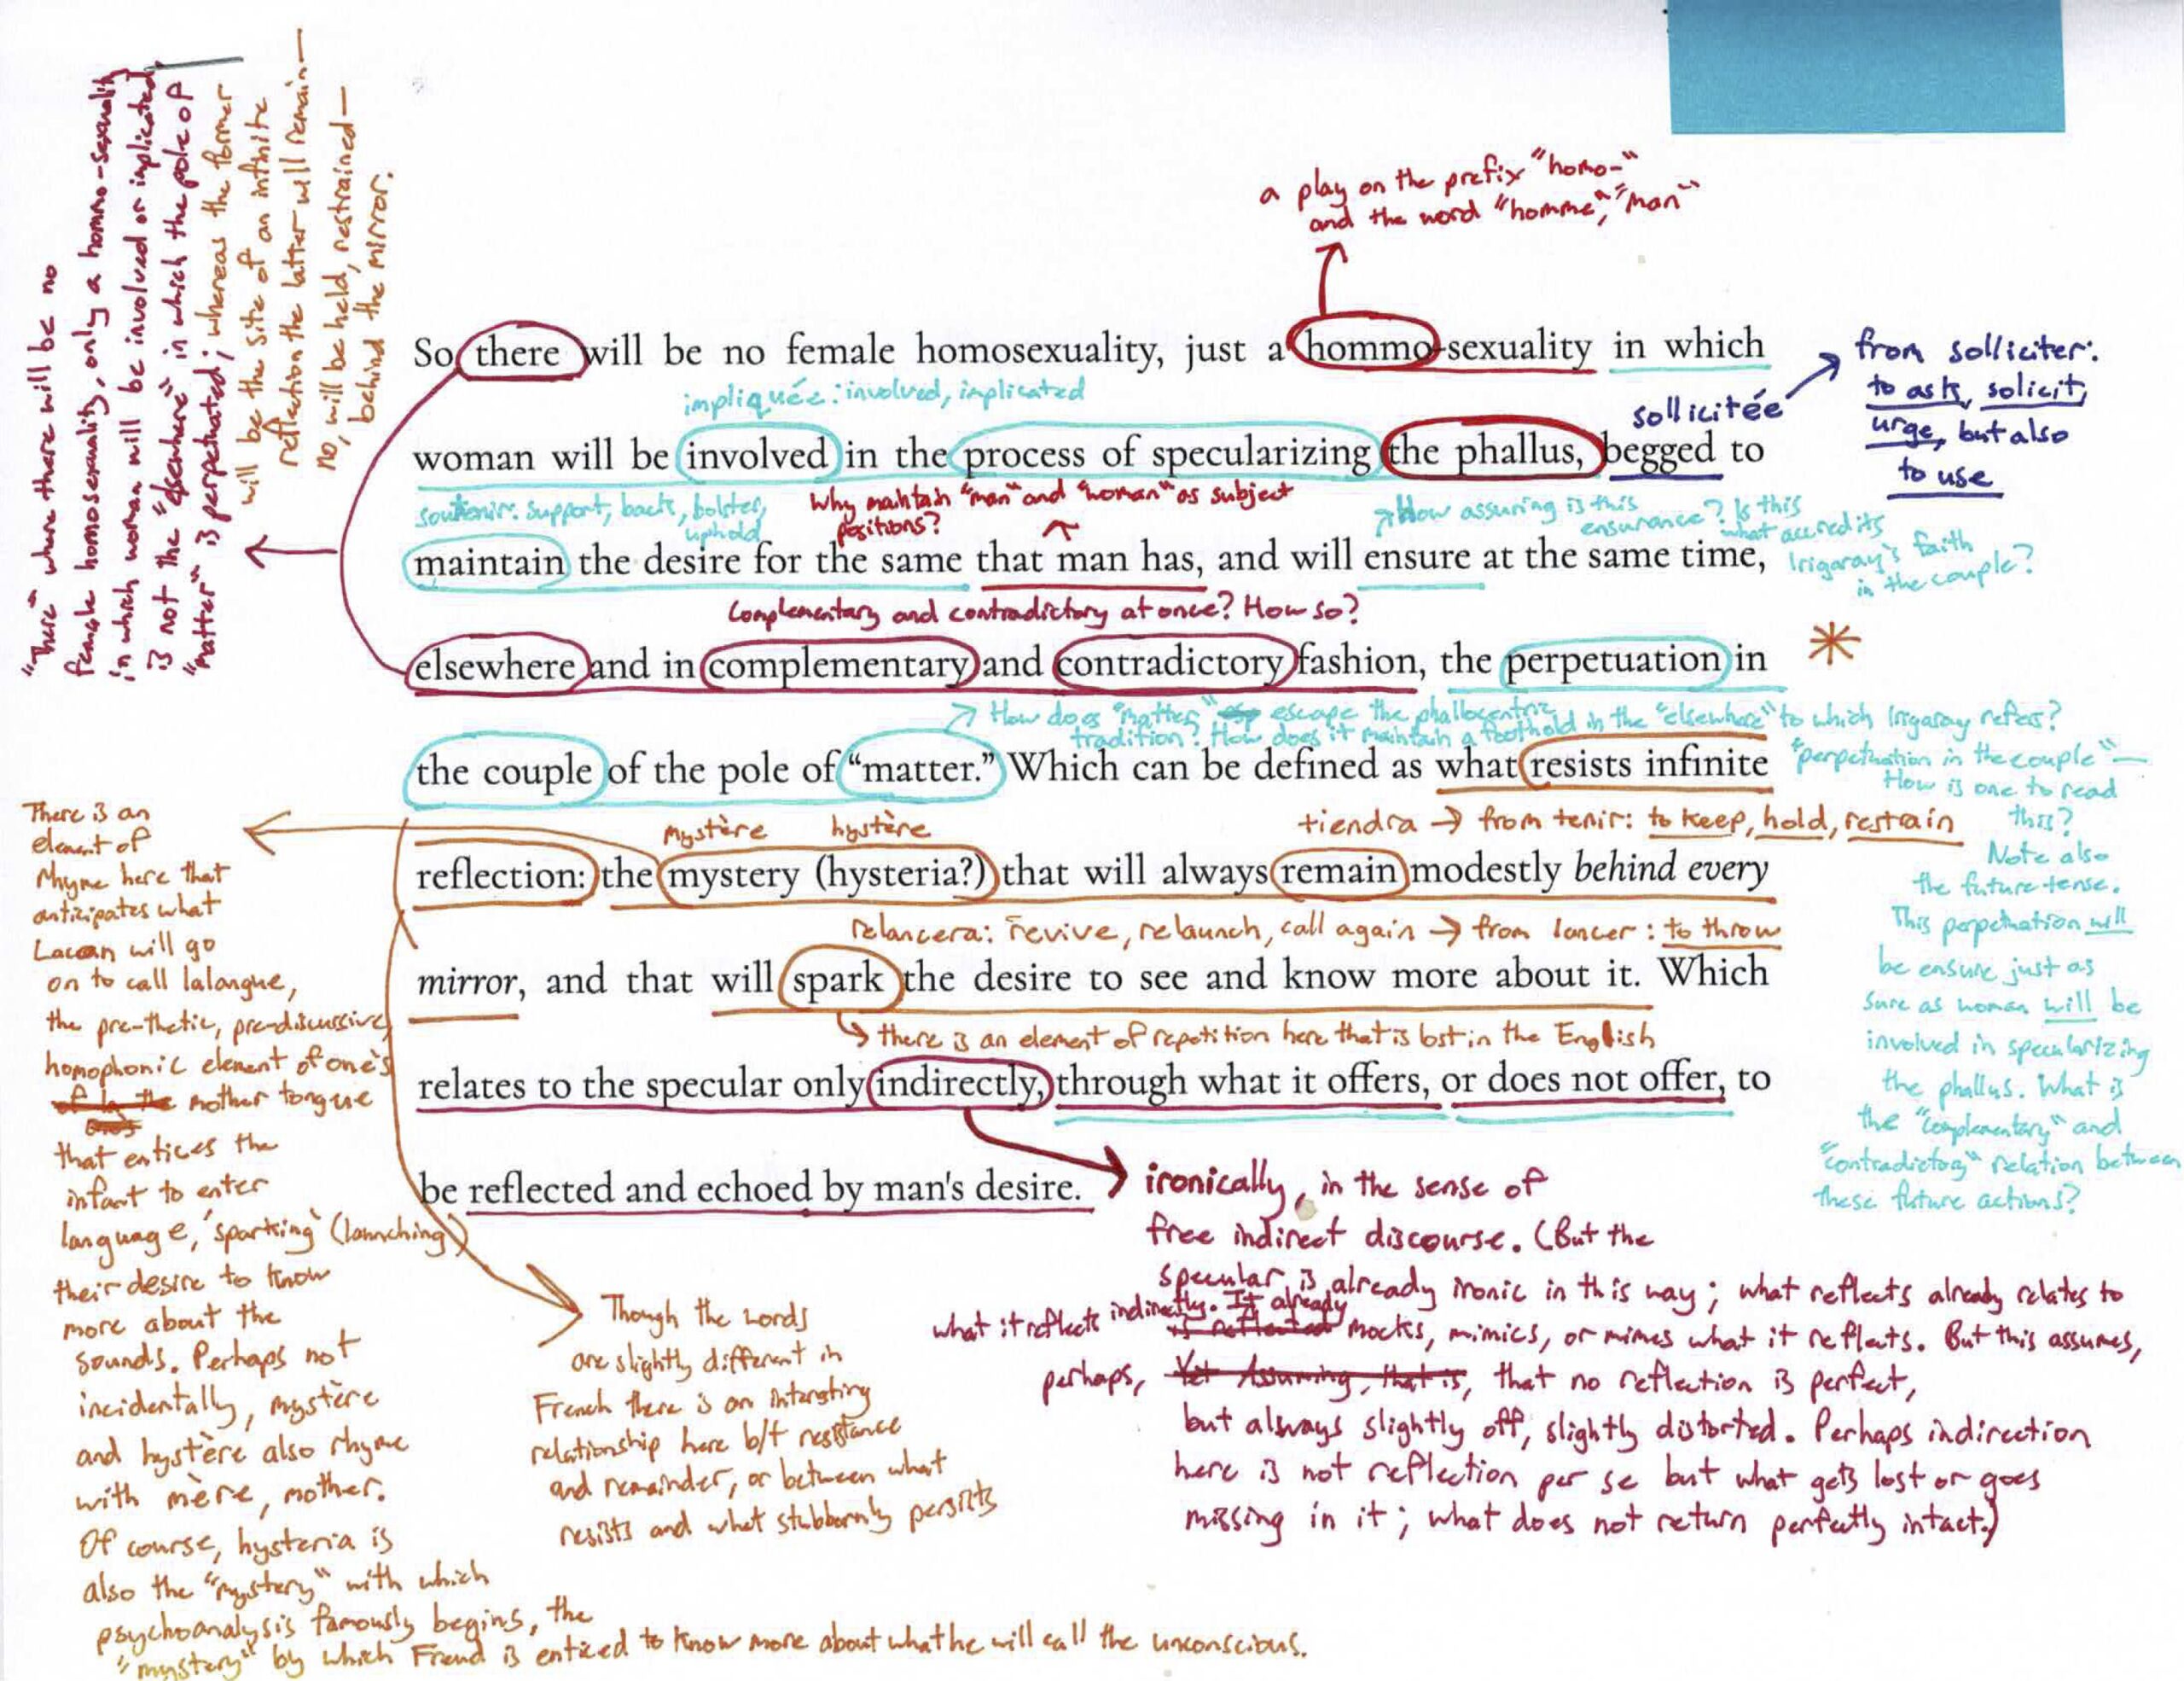 "There" where there will be no
female homosexuality, only a hommo-sexuality
in which woman will be involved or implicated,
is not the "elsewhere" in which the pole of
"matter" is perpetuated; whereas the former
will be the site of an infinite
reflection the latter will remain—
no, will be held, restrained—
behind the mirror.
a play on the prefix "homo-"
and the word "homme," "man"
So there will be no female homosexuality, just a hommo-sexuality in which
from solliciter:
to ask, solicit,
urge, but also
to use
impliquée: involved, implicated
sollicitée
woman will be involved in the process of specularizing the phallus, begged to
soutenir: support, back, bolster,
uphold
Why maintain "man" and "woman" as subject
positions?
How assuring is this
ensurance? Is this
what accredits
Irigaray's faith
in the couple?
maintain the desire for the same that man has, and will ensure at the same time,
Complementary and contradictory at once? How so?
elsewhere and in complementary and contradictory fashion, the perpetuation in
How does "matter" escape the phallocentric
tradition? How does it maintain a foothold in the "elsewhere" to which Irigaray refers?
the couple of the pole of “matter.” Which can be defined as what resists infinite
"perpetuation in the couple"—
How is one to read
this?
Note also
the future tense.
This perpetuation will
be ensure just as
sure as woman will be
involved in specularizing
the phallus. What is
the "complementary" and
"contradictory" relation between
these future actions?
mystère hystère
tiendra → from tenir: to keep, hold, restrain
reflection: the mystery (hysteria?) that will always remain modestly behind every
relancera: revive, relaunch, call again → from lancer: to throw
mirror, and that will spark the desire to see and know more about it. Which
there is an element of repetition here that is lost in the English
relates to the specular only indirectly, through what it offers, or does not offer, to
be reflected and echoed by man's desire.
There is an
element of
rhyme here that
anticipates what
Lacan will go
on to call lalangue,
the pre-thetic, pre-discursive,
homophonic element of one's
mother tongue
that entices the
infant to enter
language, 'sparking' (launching)
their desire to know
more about the
sounds. Perhaps not
incidentally, mystère
and hystère also rhyme
with mère, mother.
Of course, hysteria is
also the "mystery" with which
psychoanalysis famously begins, the
"mystery" by which Freud is enticed to know more about what he will call the unconscious.
Though the words
are slightly different in
French there is an interesting
relationship here b/t resistance
and remainder, or between what
resists and what stubbornly persists
ironically, in the sense of
free indirect discourse. (But the
specular is already ironic in this way; what reflects already relates to
what it reflects indirectly. It already
is reflected mocks, mimics, or mimes what it reflects. But this assumes,
perhaps, Yet Assuming, that is, that no reflection is perfect,
but always slightly off, slightly distorted. Perhaps indirection
here is not reflection per se but what gets lost or goes
missing in it; what does not return perfectly intact.)